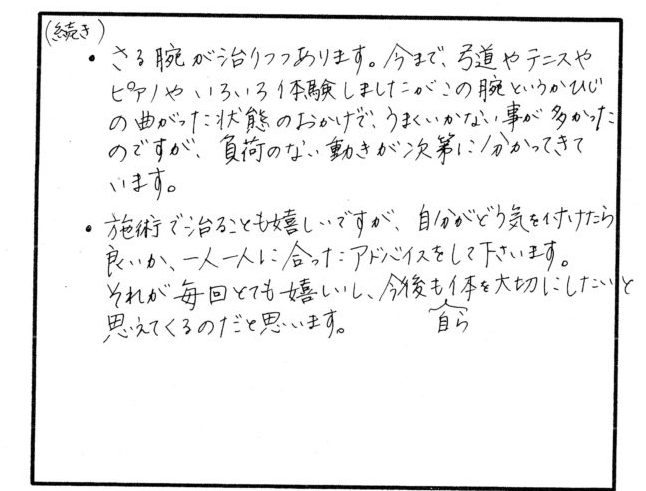 (続き)
・さる腕が治りつつあります。今まで、弓道やテニスや
ピアノやいろいろ体験しましたがこの腕というかひじ
の曲がった状態のおかげで、うまくいかない事が多かった
のですが、負荷のない動きが次第に分かってきて
います。
・施術で治ることも嬉しいですが、自分がどう気を付けたら
良いか、一人一人に合ったアドバイスをして下さいます。
それが毎回とても嬉しいし、今後も体を大切にしたいと
自ら
思えてくるのだと思います。